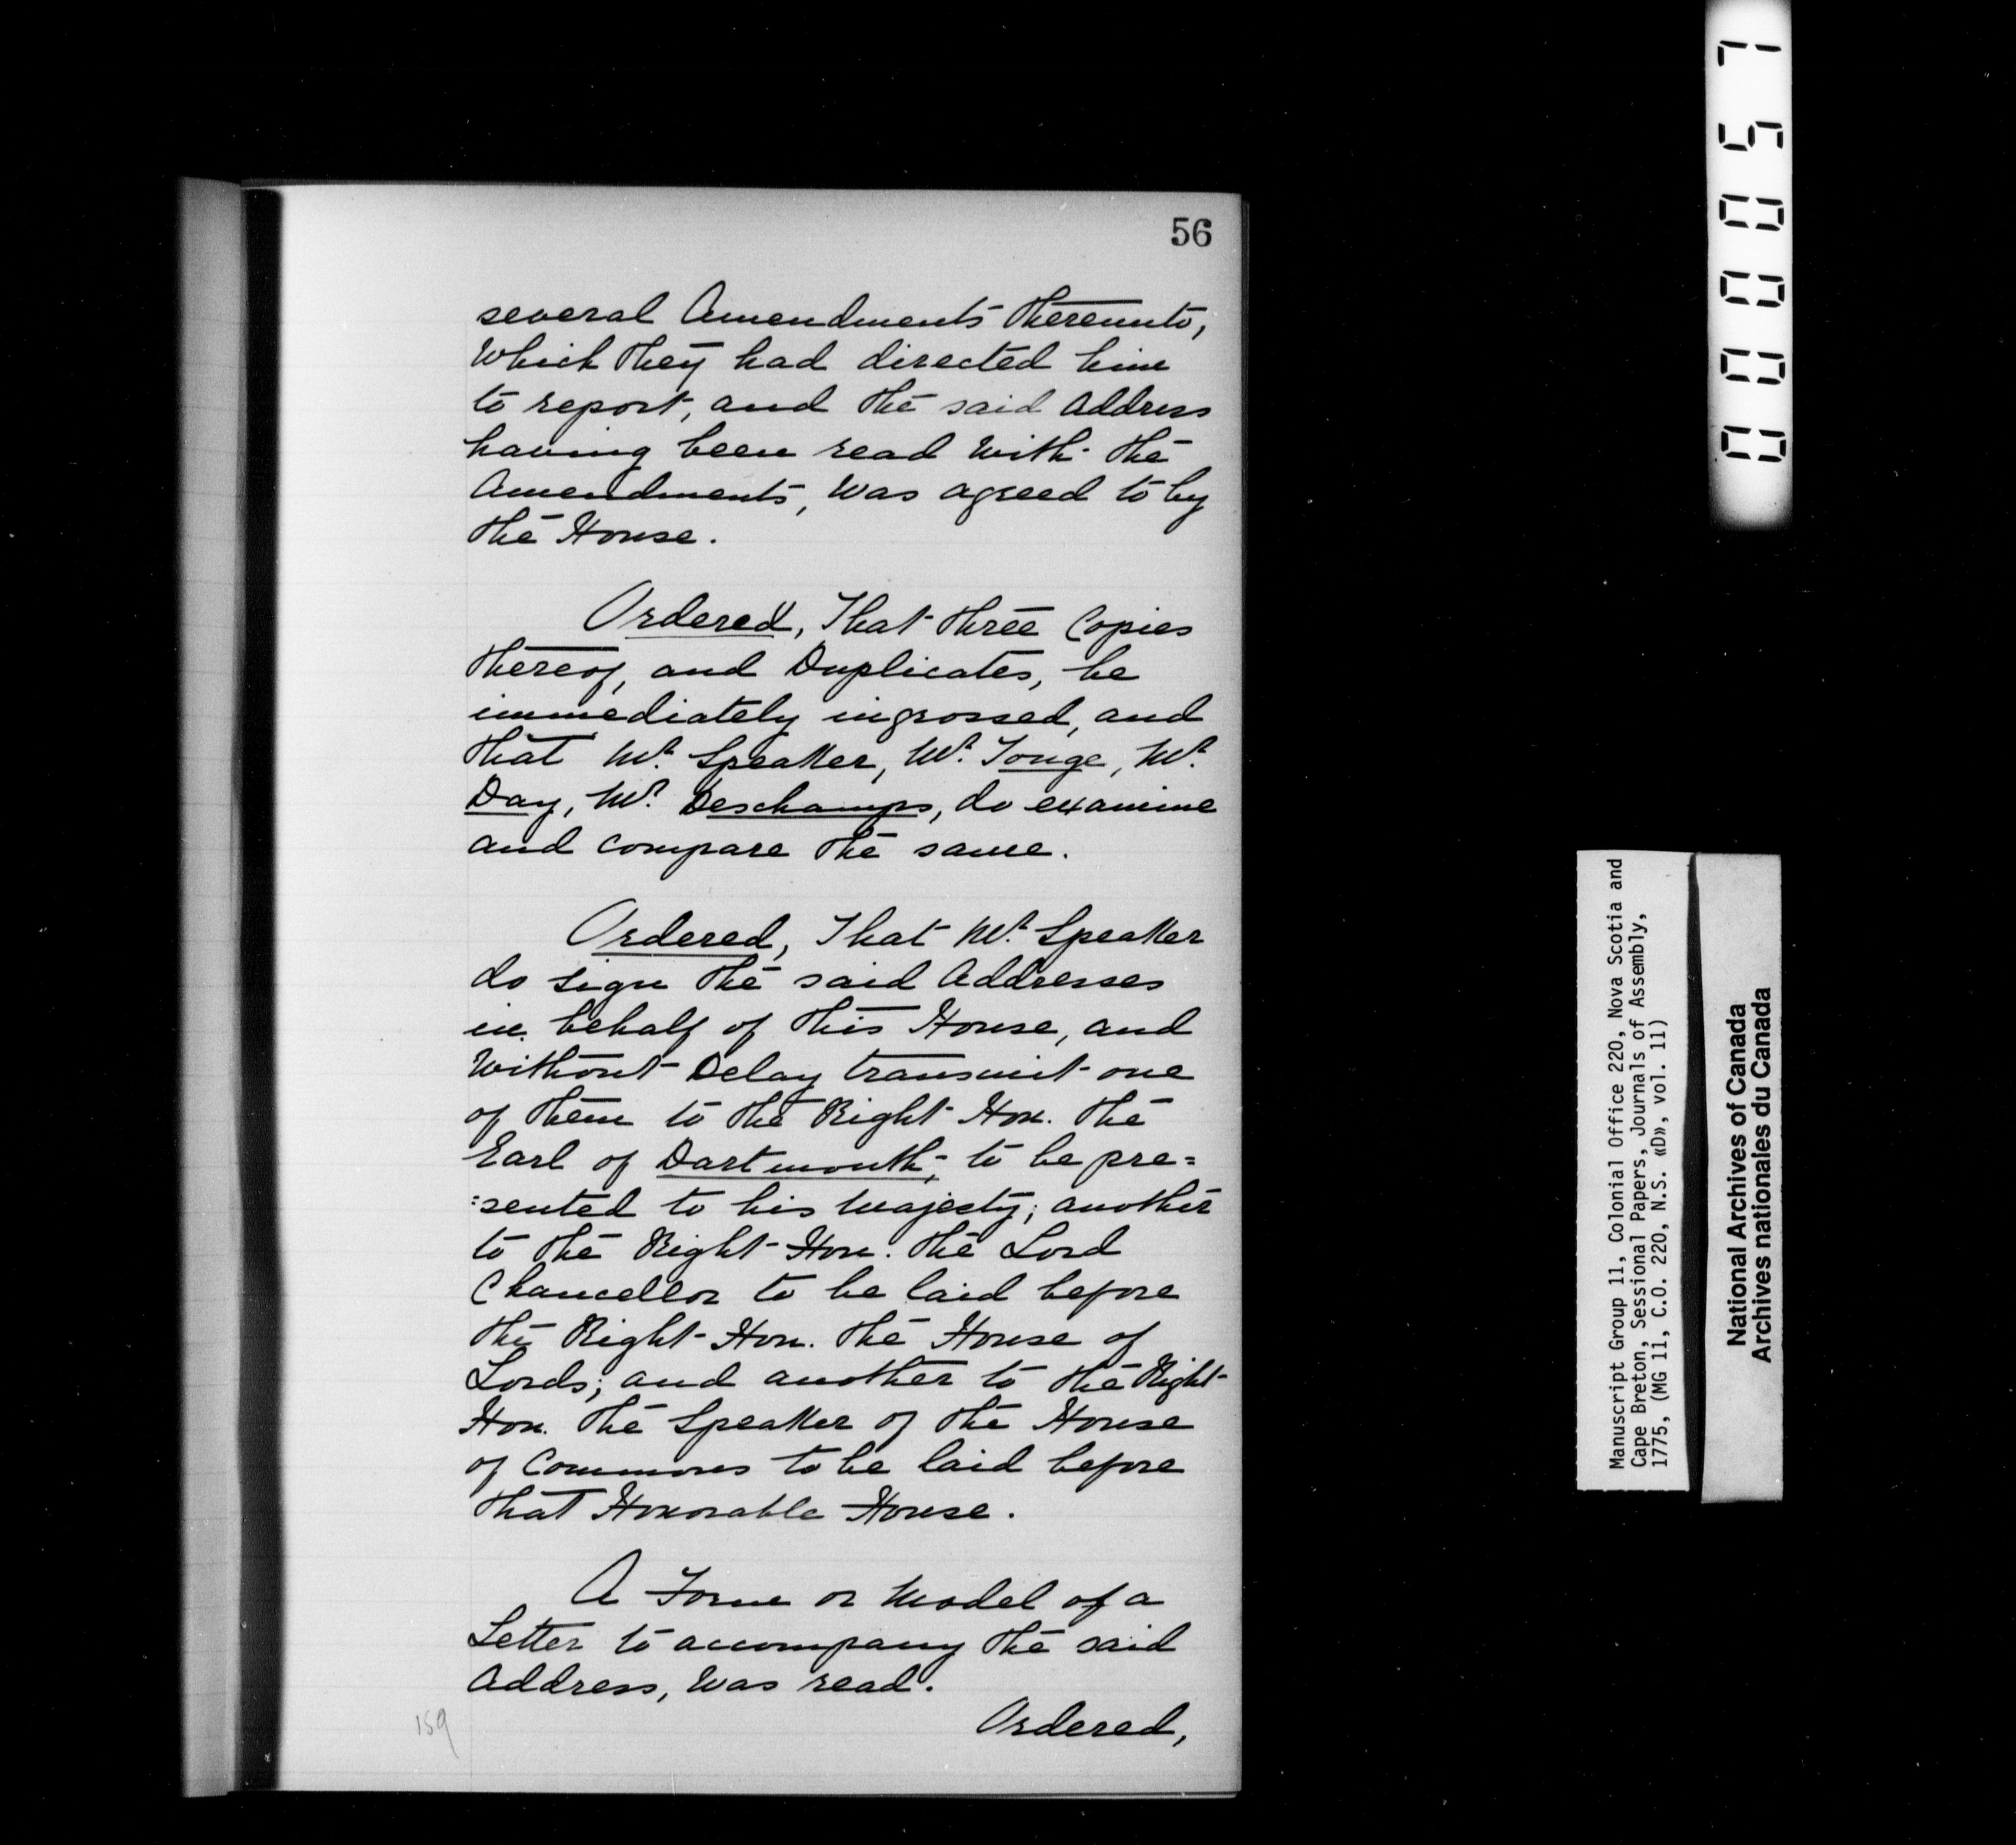 56
several Amendments thereunto,
which they had directed him
to report, and the said Address
having been read with the
Amendments, was agreed to by
the House.
Ordered, That three Copies
thereof, and Duplicates, be
immediately ingrossed, and
that Mr. Speaker, Mr. Tonge, Mr.
Day, Mr. Deschamps, do examine
and compare the same.
Ordered, That Mr. Speaker
do sign the said Addresses
in behalf of this House, and
without Delay transmit one
of them to the Right Hon. the
Earl of Dartmouth, to be pre=
=sented to his Majesty; another
to the Right Hon. the Lord
Chancellor to be laid before
the Right Hon. the House of
Lords; and another to the Right
Hon. the Speaker of the House
of Commons to be laid before
that Honorable House.
A Form or Model of a
Letter to accompany the said
Address, was read.
Ordered,
159
000057
Manuscript Group 11, Colonial Office 220, Nova Scotia and
Cape Breton, Sessional Papers, Journals of Assembly,
1775, (MG 11, C.O. 220, N.S. «D», vol. 11)
National Archives of Canada
Archives nationales du Canada